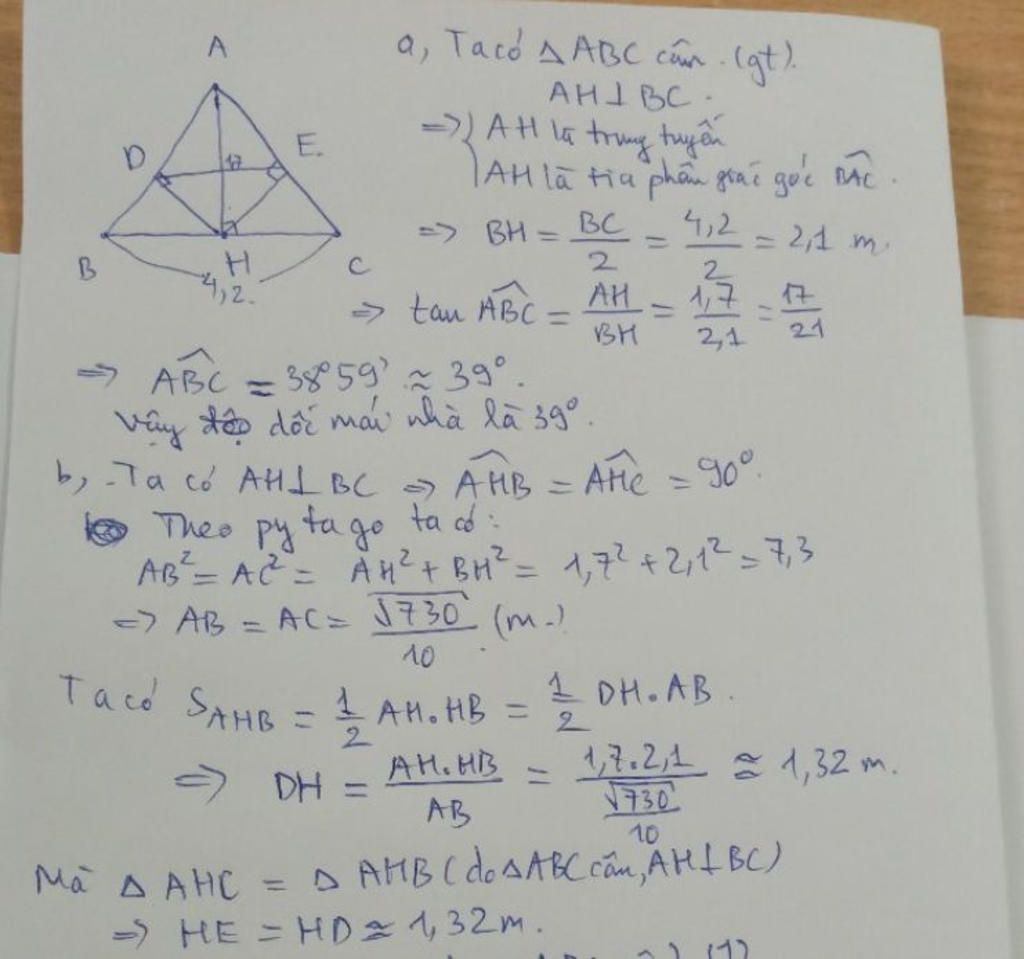 A
D
E.
17
B
H
C
4,2.
a, Ta có △ABC cân. (gt).
AH⊥BC.
=> { AH là trung tuyến
AH là tia phân giác góc \widehat{BAC}.
=> BH = \frac{BC}{2} = \frac{4,2}{2} = 2,1 m.
=> tan \widehat{ABC} = \frac{AH}{BH} = \frac{1,7}{2,1} = \frac{17}{21}
=> \widehat{ABC} = 38°59' ≈ 39°.
Vậy dốc mái nhà là 39°.
b, - Ta có AH⊥BC => \widehat{AHB} = \widehat{AHC} = 90°.
Theo pytago ta có:
AB² = AC² = AH² + BH² = 1,7² + 2,1² = 7,3
=> AB = AC = \frac{\sqrt{730}}{10} (m.)
Ta có S_{AHB} = \frac{1}{2} AH.HB = \frac{1}{2} DH.AB.
=> DH = \frac{AH.HB}{AB} = \frac{1,7.2,1}{\frac{\sqrt{730}}{10}} ≈ 1,32 m.
Mà △AHC = △AHB (do △ABC cân, AH⊥BC)
=> HE = HD ≈ 1,32 m.